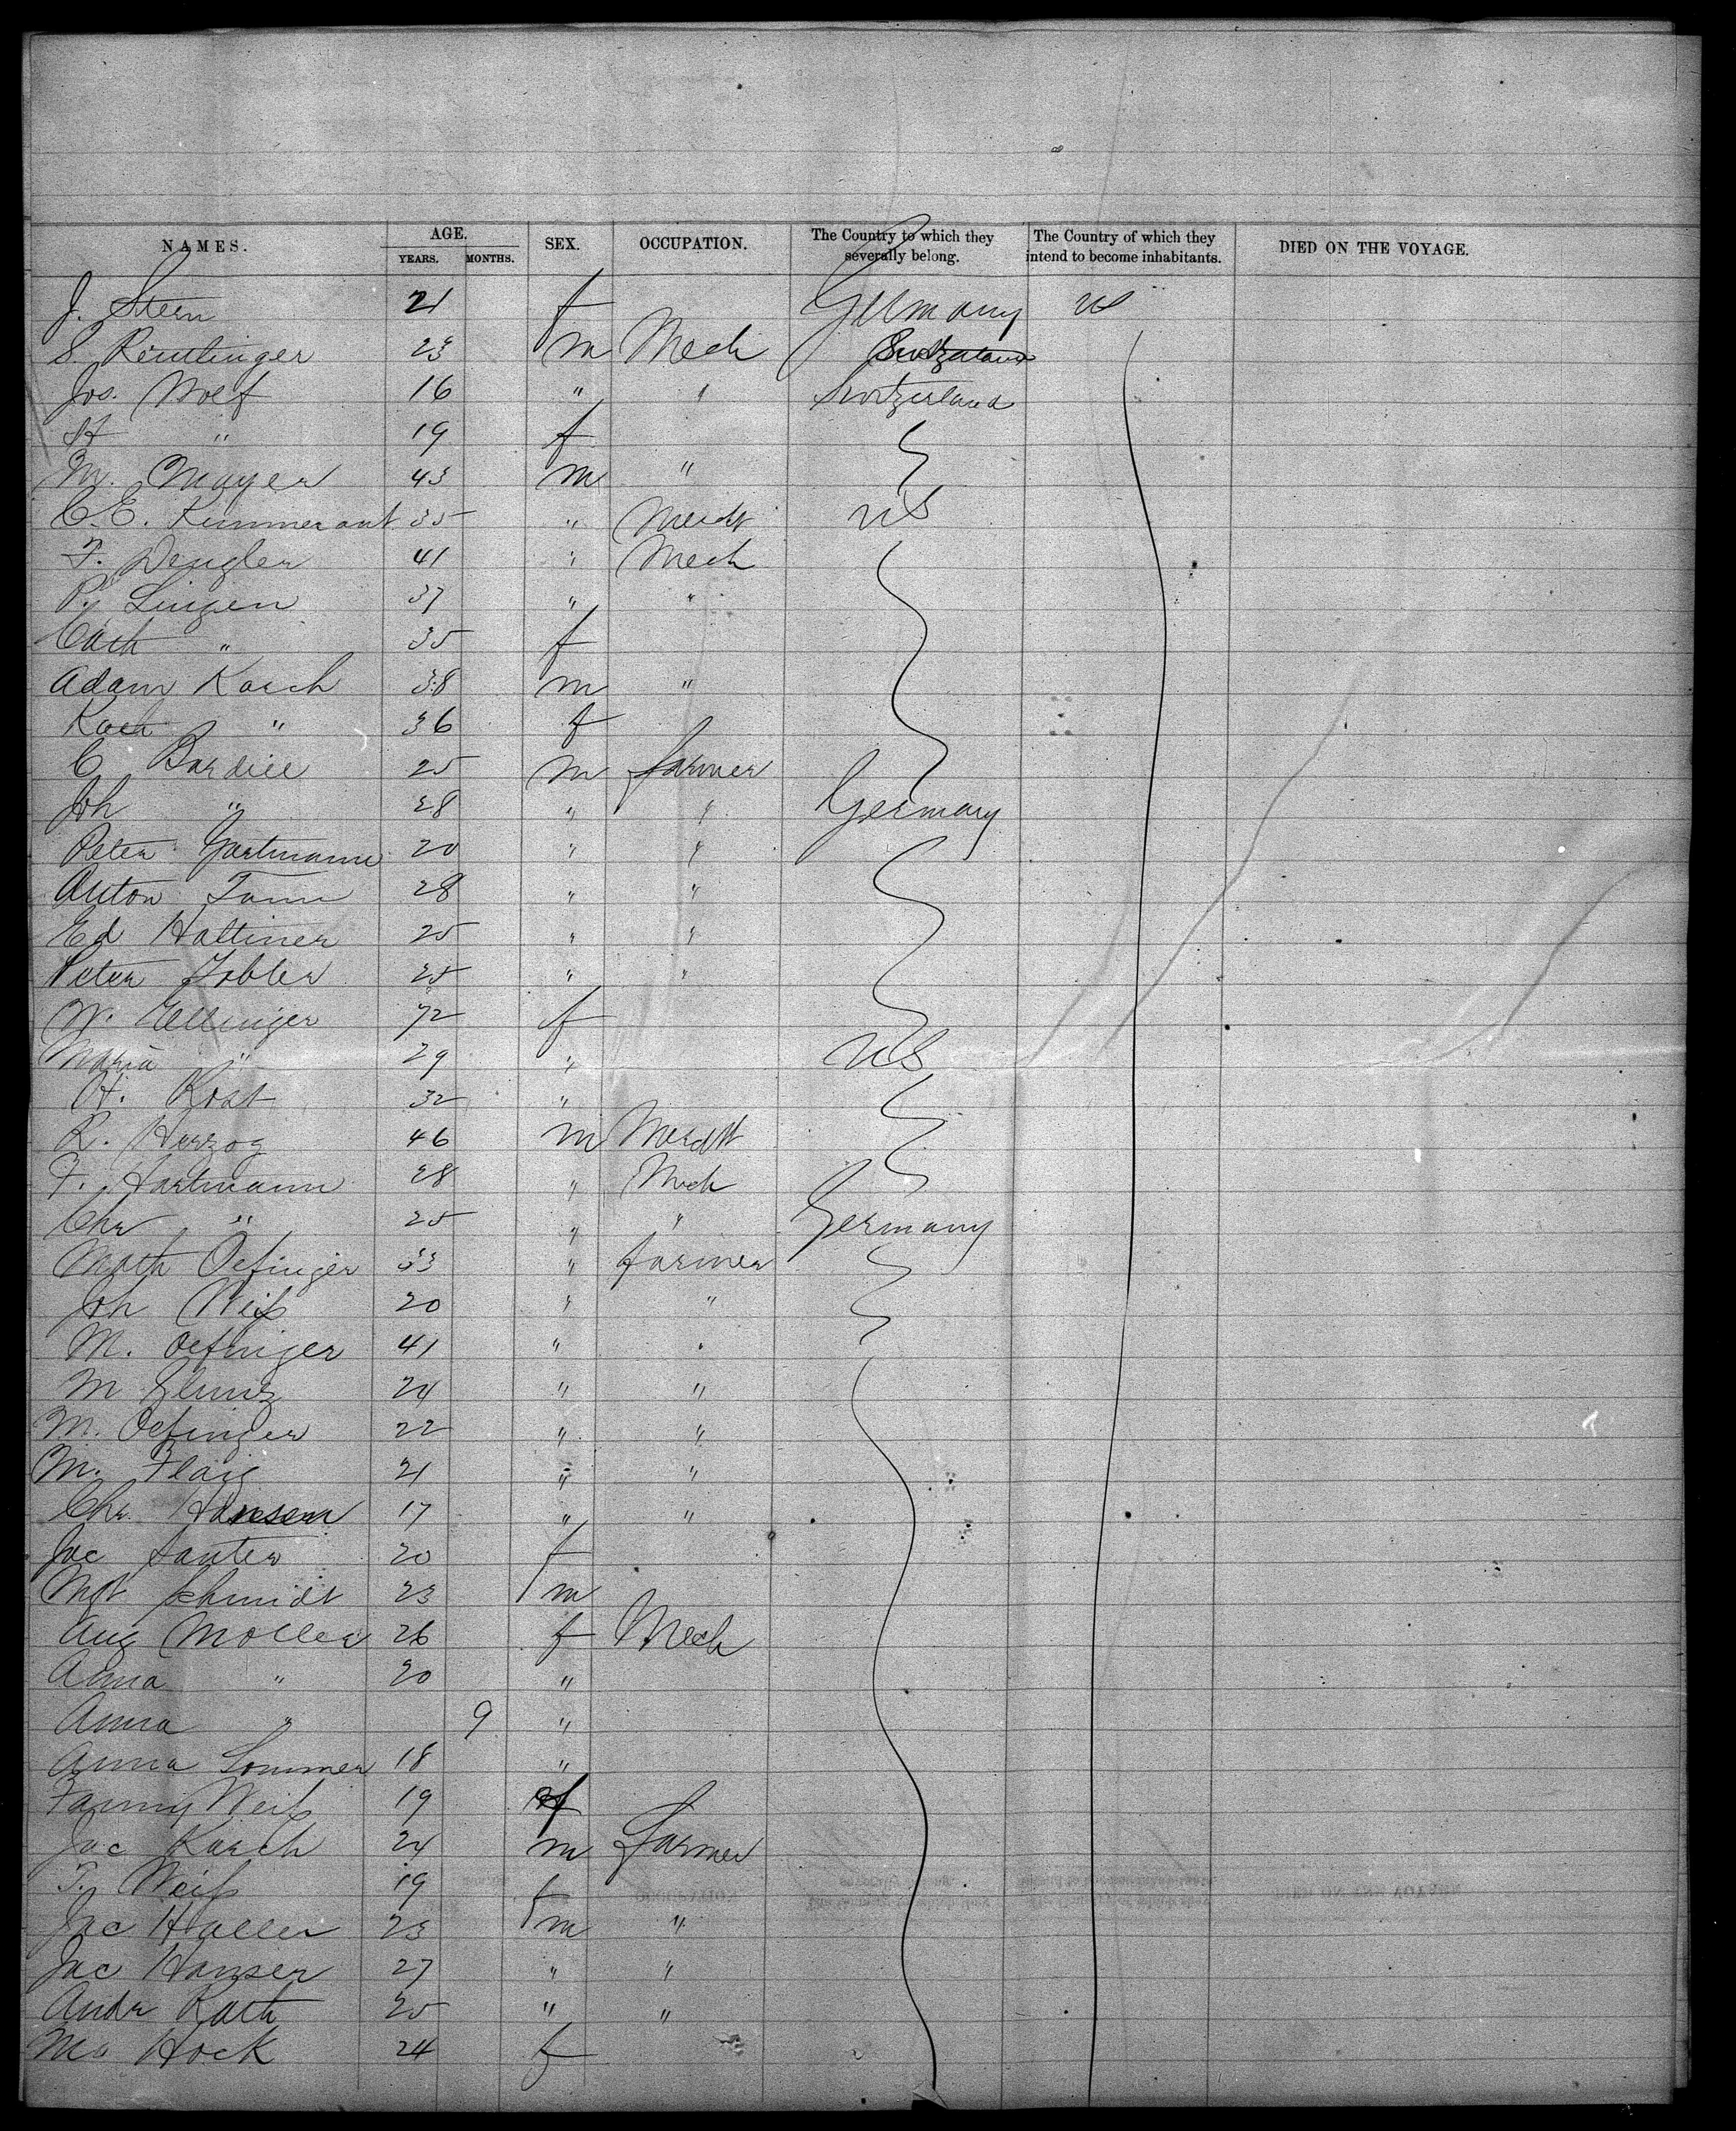 NAMES. AGE. SEX. OCCUPATION. The Country to which they severally belong. The Country of which they intend to become inhabitants. DIED ON THE VOYAGE.
YEARS. MONTHS.
J. Stern 21 f Germany US
S. Reutlinger 23 m Mech Switzerland
Jos. Wolf 16 " " Switzerland
H " 19 f
M. Mayer 43 m "
C. E. 35 " Mercht US
F. Dengler 41 " Mech
P. Lingen 37 " "
Cath " 35 f
Adam Karch 38 m "
Kath " 36 f
C Bardill 25 m farmer
Joh " 28 " " Germany
Peter Hartmann 20 " "
Anton 28 " "
Ed Haltiner 25 " "
Peter Tobler 25 " "
W. Ellinger 72 f
Maria " 29 " US
H. Rost 32 "
R. Herzog 46 m Mercht
F. Hartmann 28 " Mech
Chr " 25 " " Germany
Math Oefinger 33 " farmer
Joh Weiß 20 " "
M. Oefinger 41 " "
M 24 " "
M. Oefinger 22 " "
M. Flaig 21 " "
Chr. Hansen 17 " "
Jac Sauter 20 f
Mgt Schmidt 23 m
Aug Moller 26 f Mech
Anna " 20 "
Anna " 9 "
Anna Sommer 18 "
Fanny Weiß 19 f
Jac Karch 24 m farmer
F. Weiß 19 f
Jac Haller 23 m "
Jac Hanser 27 " "
Andr Rath 25 " "
Ma Hock 24 f